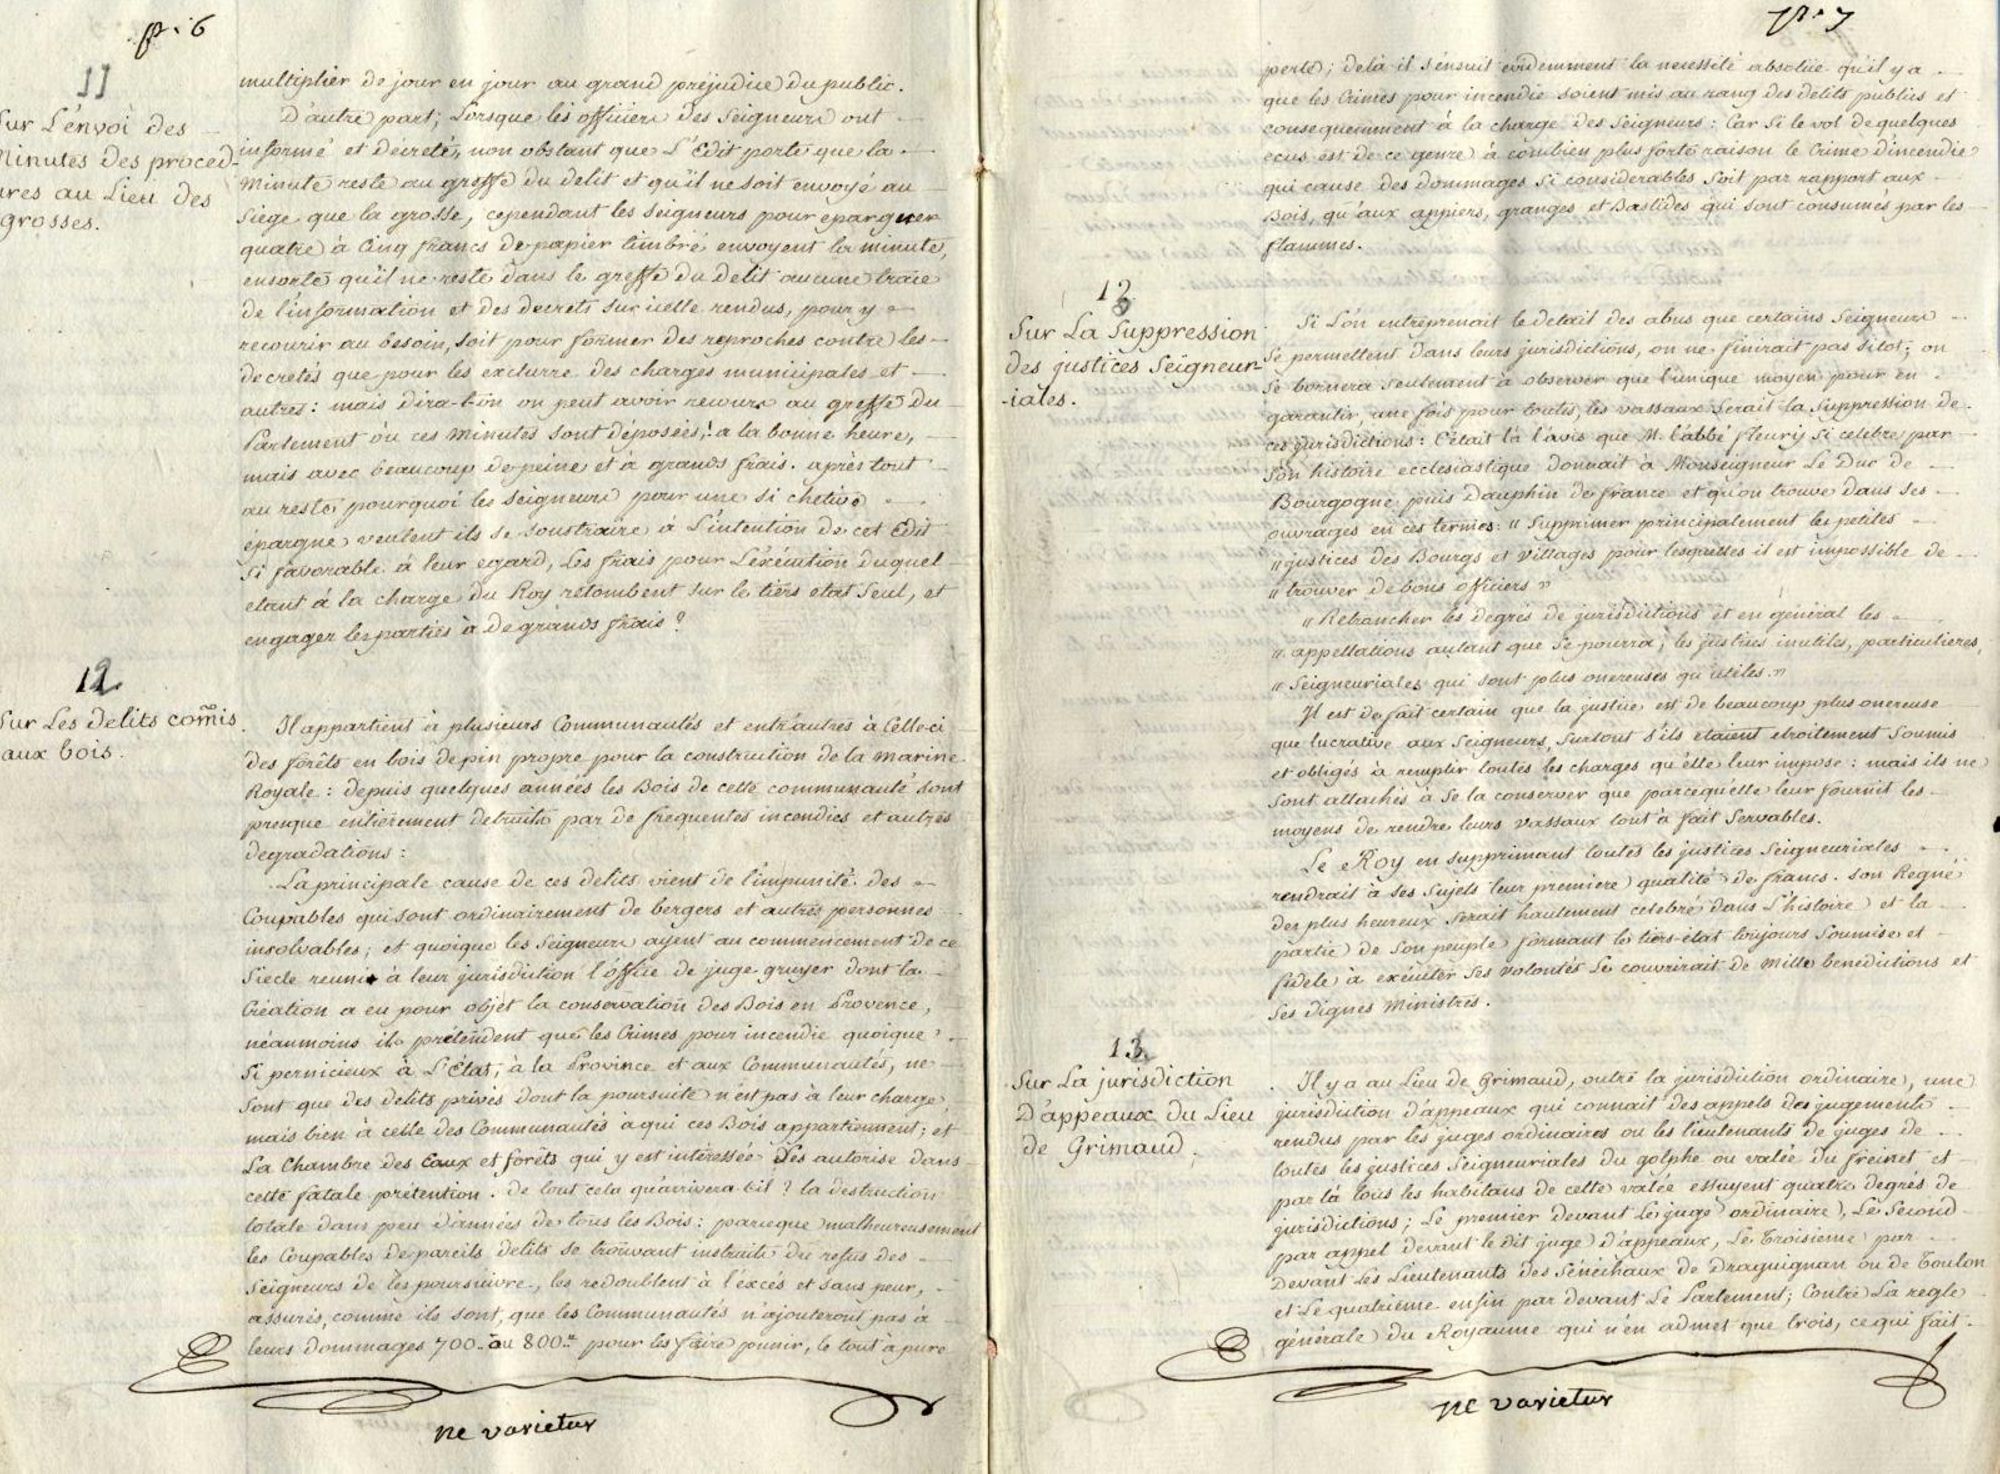 p. 6
11
Sur L'envoi des
Minutes des proced-
ures au Lieu des
Grosses.
multiplier de jour en jour au grand préjudice du public.
D'autre part; Lorsque les officiers des Seigneurs ont
informé et décreté, non obstant que L'Edit porte que la
Minute reste au greffe du delit et qu'il ne soit envoyé au
Siege que la grosse, cependant les seigneurs pour epargner
quatre à Cinq francs de papier timbré envoyent la minute,
ensorte qu'il ne reste dans le greffe du delit aucune trace
de l'information et des decrets sur icelle rendus, pour y
recourir au besoin, soit pour former des reproches contre les
decretés que pour les exclurre des charges municipales et
autres: mais dira-t-on on peut avoir recours au greffe du
Parlement où ces Minutes sont déposées, à la bonne heure,
mais avec beaucoup de peine et à grands frais. après tout
au reste, pourquoi les seigneurs pour une si chetive
épargne veulent ils se soustraire à L'intention de cet Edit
si favorable à leur egard, Les frais pour L'exécution duquel
etant à la charge du Roy retombent sur le tiers etat Seul, et
engager les parties à de grands frais?
12
Sur Les delits comis
aux bois.
Il appartient à plusieurs Communautés et entr'autres à Celle-ci
des forêts en bois de pin propre pour la construction de la marine
Royale: depuis quelques années les Bois de cette communauté sont
presque entièrement detruits par de frequentes incendies et autres
degradations:
La principale cause de ces delits vient de l'impunité des
Coupables qui sont ordinairement de bergers et autres personnes
insolvables; et quoique les Seigneurs ayent au commencement de ce
Siecle reuni à leur jurisdiction l'office de juge gruyer dont la
Création a eu pour objet la conservation des Bois en Provence,
néanmoins ils prétendent que les Crimes pour incendie quoique
si pernicieux à L'État, à la Province et aux Communautés, ne
sont que des delits privés dont la poursuite n'est pas à leur charge,
mais bien à celle des Communautés à qui ces Bois appartiennent; et
La Chambre des Eaux et forêts qui y est intéressée Les autorise dans
cette fatale prétention. de tout cela qu'arrivera-t-il? la destruction
totale dans peu d'années de tous les Bois: parceque malheureusement
les Coupables de pareils delits se trouvant instruits du refus des
Seigneurs de les poursuivre, les redoublent à l'excés et sans peur,
assurés, comme ils sont, que les Communautés n'ajouteront pas à
leurs dommages 700. ou 800.tt pour les faire punir, le tout à pure
ne varietur
p. 7
perte; delà il s'ensuit evidemment la necessité absolüe qu'il y a
que les Crimes pour incendie soient mis au rang des delits publics et
consequemment à la charge des Seigneurs: Car si le vol de quelques
ecus est de ce genre à combien plus forte raison le Crime d'incendie
qui cause des dommages si considerables soit par rapport aux
Bois, qu'aux appiers, granges et Bastides qui sont consumés par les
flammes.
12
Sur La Suppression
des justices Seigneur-
-iales.
Si L'on entreprenait le detail des abus que certains Seigneurs
se permettent dans leurs jurisdictions, on ne finirait pas sitot; on
se bornera seulement à observer que l'unique moyen pour en
garantir, une fois pour toutes, les vassaux serait la suppression de
ces jurisdictions: C'était là l'avis que M. l'abbé fleury si celebre par
son histoire ecclesiastique donnait à Monseigneur Le Duc de
Bourgogne puis Dauphin de france et qu'on trouve dans ses
ouvrages en ces termes: " Supprimer principalement les petites
" justices des Bourgs et villages pour lesquelles il est impossible de
" trouver de bons officiers "
" Retrancher les degrés de jurisdictions et en général les
" appellations autant que se pourra; les justices inutiles, particulieres,
" Seigneuriales qui sont plus onereuses qu'utiles. "
Il est de fait certain que la justice est de beaucoup plus onereuse
que lucrative aux Seigneurs, surtout s'ils etaient etroitement soumis
et obligés à remplir toutes les charges qu'elle leur impose: mais ils ne
sont attachés à se la conserver que parcequ'elle leur fournit les
moyens de rendre leurs vassaux tout à fait Servables.
Le Roy en supprimant toutes les justices Seigneuriales
rendrait à ses Sujets leur premiere qualité de francs. son Regne
des plus heureux serait hautement celebré dans L'histoire et la
partie de son peuple formant le tiers-état toujours Soumise et
fidele à exécuter ses volontés se couvrirait de Mille benedictions et
ses dignes Ministres.
13
Sur La jurisdiction
D'appeaux du Lieu
de Grimaud.
Il y a au Lieu de Grimaud, outre la jurisdiction ordinaire, une
jurisdiction d'appeaux qui connait des appels des jugements
rendus par les juges ordinaires ou les lieutenants de juges de
toutes les justices Seigneuriales du golphe ou valée du freinet et
par là tous les habitans de cette valée essuyent quatre degrés de
jurisdictions; Le premier devant Le juge ordinaire, Le Second
par appel devant le dit juge d'appeaux, Le Troisieme par
devant Les Lieutenants des Sénéchaux de Draguignan ou de Toulon
et Le quatrième enfin par devant Le Parlement; Contre La regle
générale du Royaume qui n'en admet que trois, ce qui fait
ne varietur